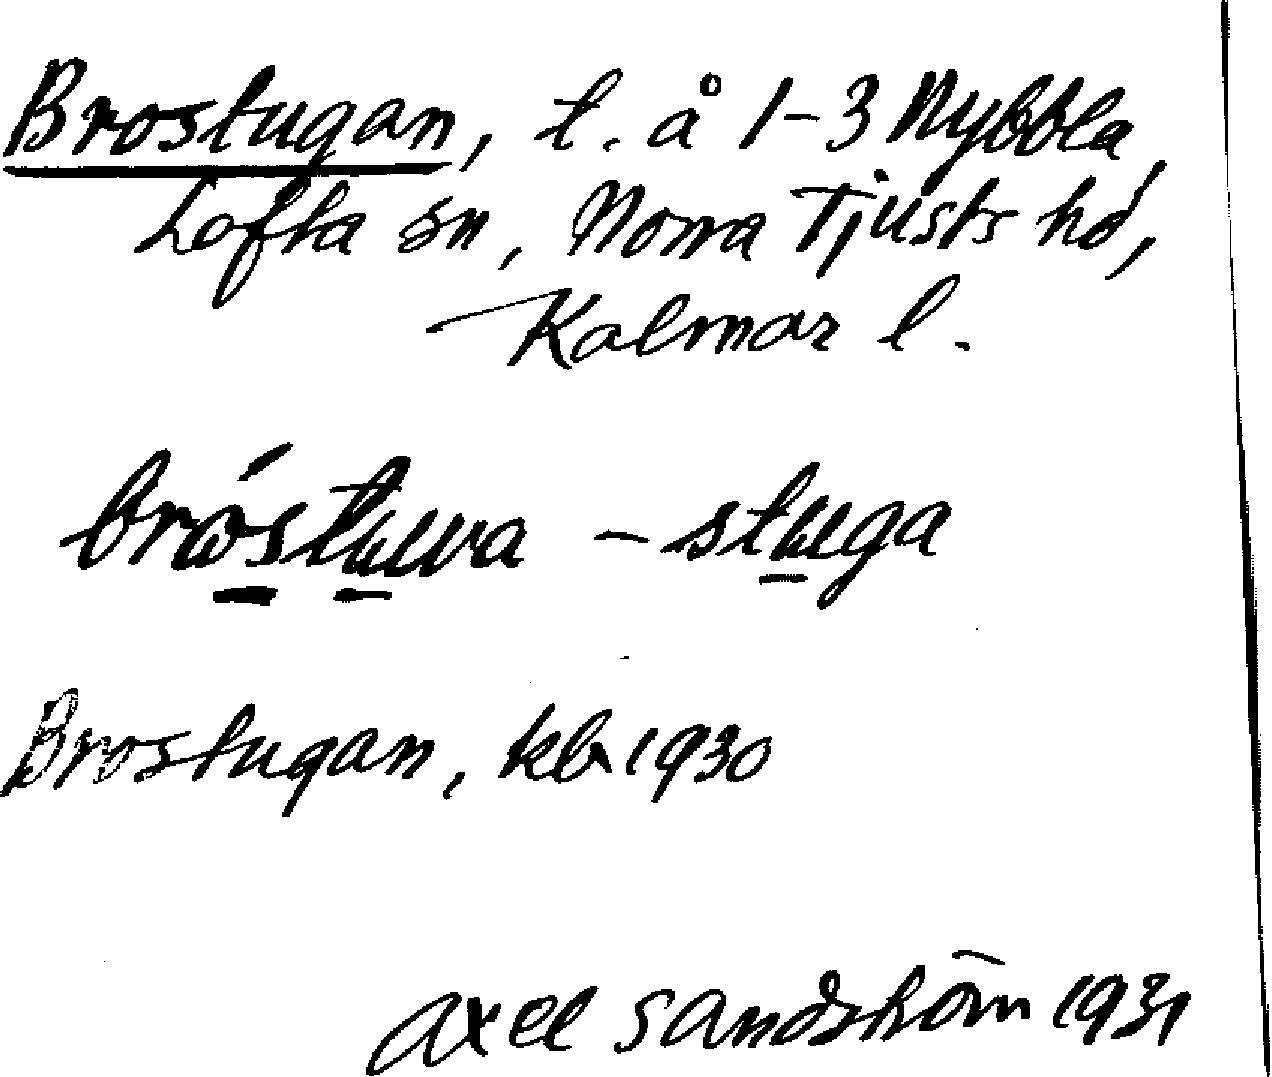 Brostugan, l. å 1-3 Nybbla,
Lofta sn, Norra Tjusts hd,
Kalmar l.
bróstuva - stuga
Brostugan, kb 1930
Axel Sandström 1931